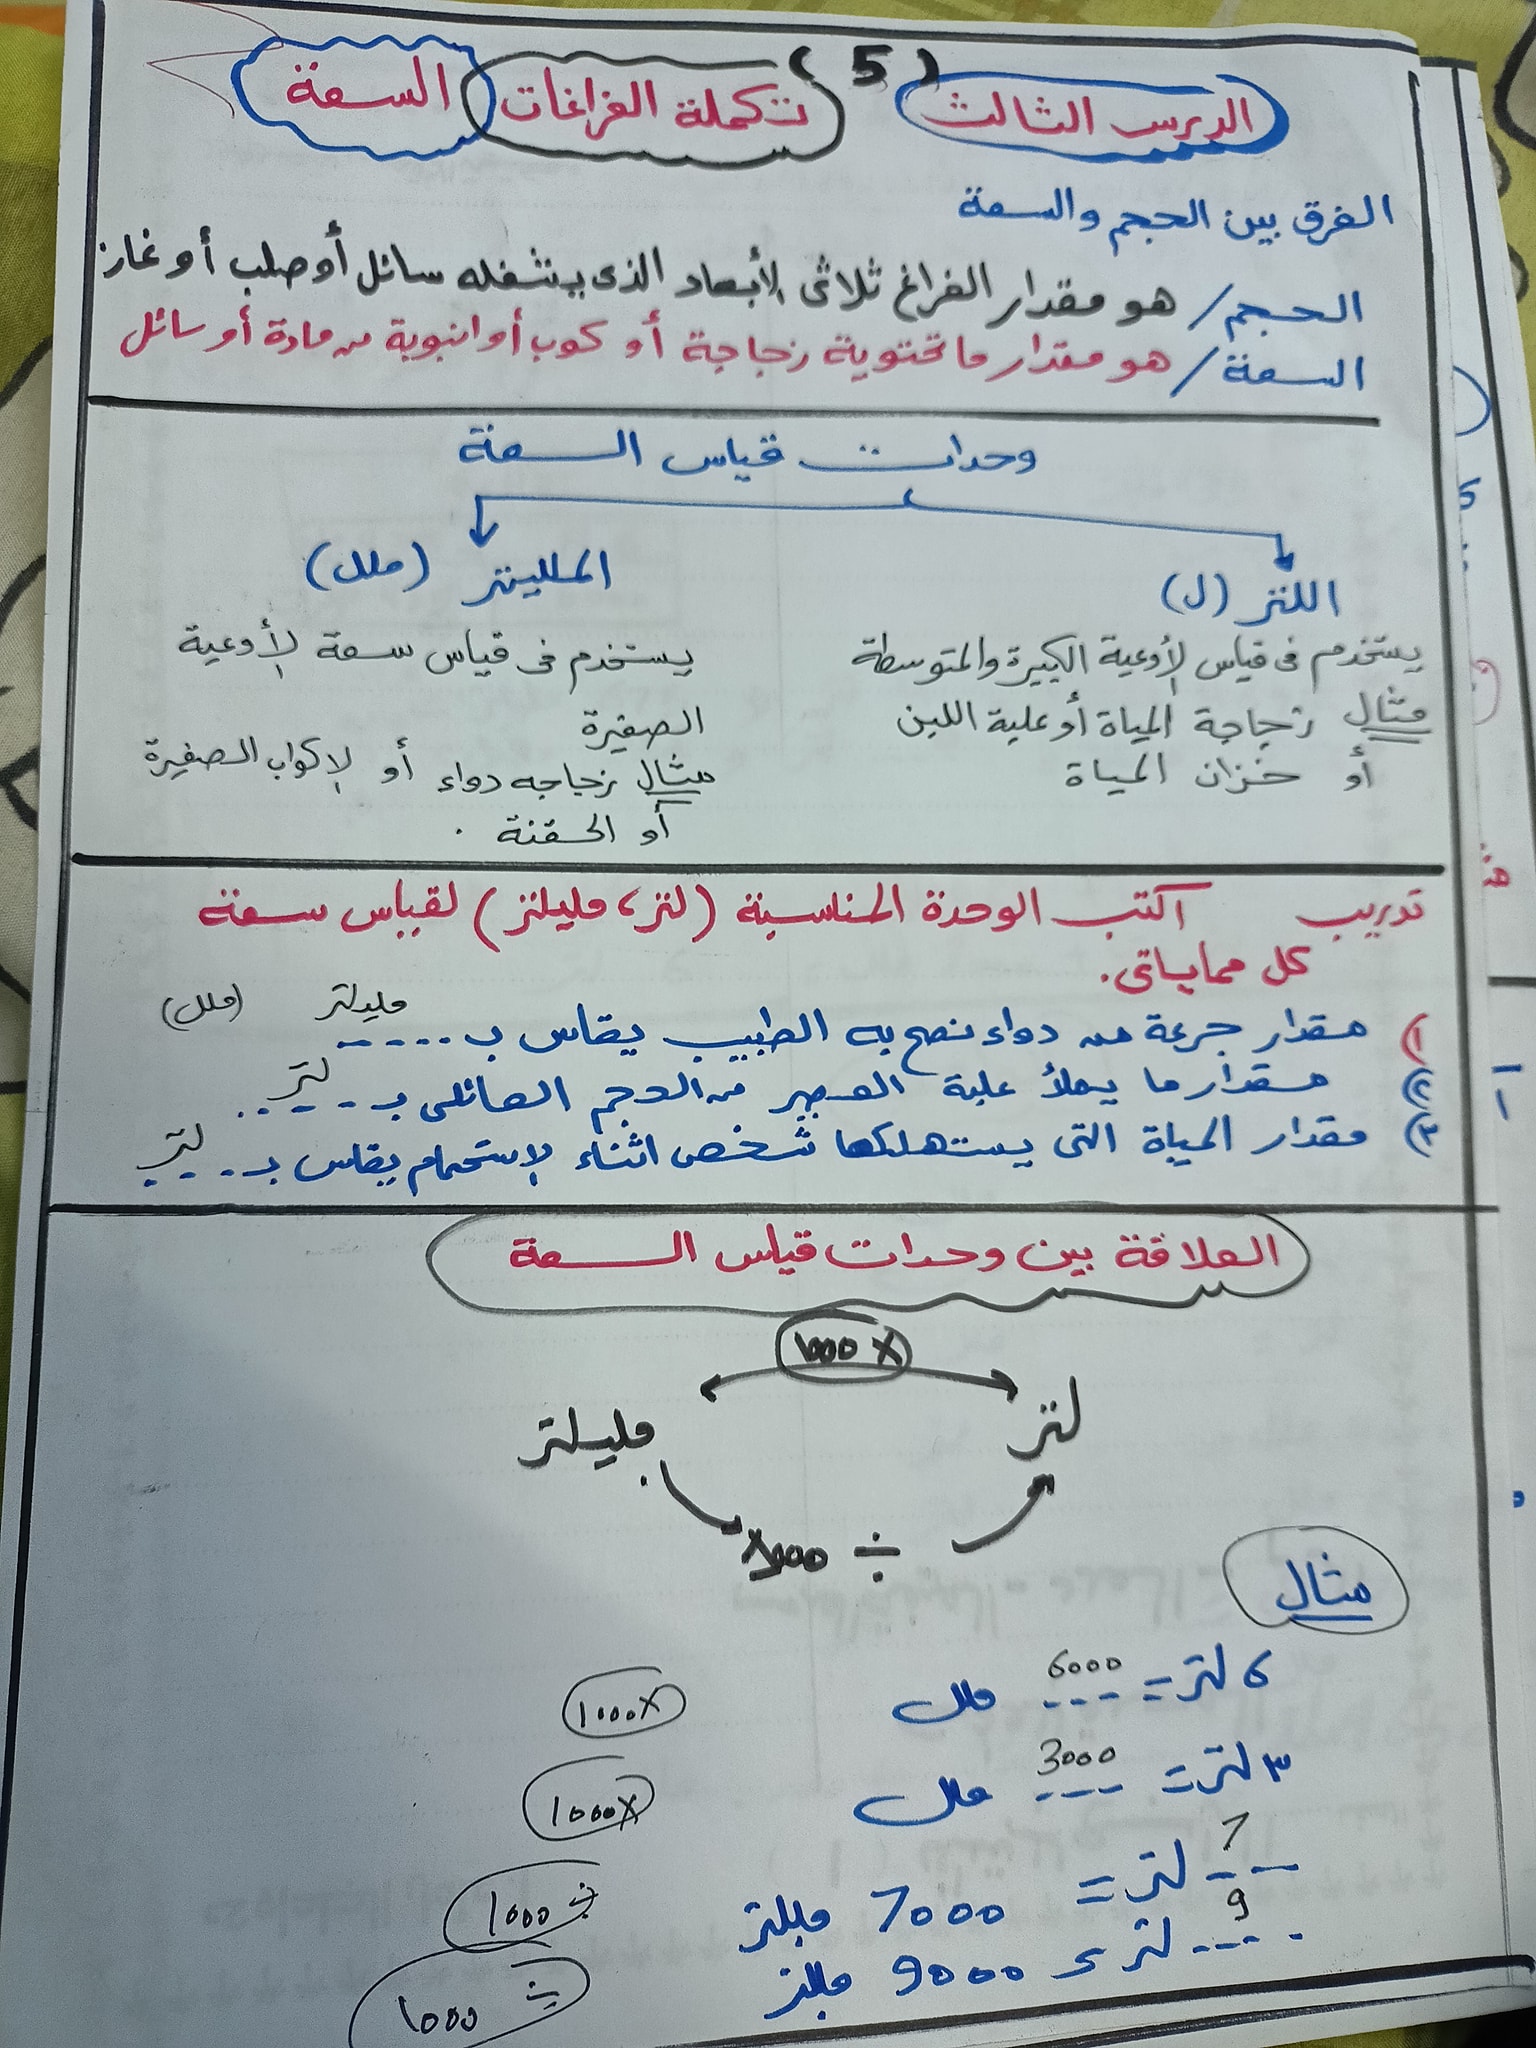 (5)
الدرس الثالث تكملة الفراغات السعة
الفرق بين الحجم والسعة
الحجم / هو مقدار الفراغ ثلاثى الأبعاد الذى يشغله سائل أو صلب أو غاز
السعة / هو مقدار ما تحتوية زجاجة أو كوب أو انبوبة من مادة أو سائل
وحدات قياس السعة
اللتر (ل)
يستخدم فى قياس الأوعية الكبيرة والمتوسطة
مثال زجاجة المياة أو علبة اللبن
أو خزان المياة
المللیتر (ملل)
يستخدم فى قياس سعة الأوعية
الصغيرة
مثال زجاجه دواء أو الاكواب الصغيرة
أو الحقنة .
تدريب اكتب الوحدة المناسبة (لتر، مليلتر) لقياس سعة
كل مما يأتى.
١) مقدار جرعة من دواء نصح به الطبيب يقاس ب ..... مليلتر (ملل)
٢) مقدار ما يملأ علبة العصير من الحجم العائلى ب ... لتر
٣) مقدار المياة التى يستهلكها شخص اثناء الاستحمام يقاس ب ... لتر
العلاقة بين وحدات قياس السعة
1000 x
لتر مليلتر
1000 ÷
مثال
٦ لتر = 6000 ملل 1000x
٣ لتر = 3000 ملل 1000x
7 لتر = 7000 مليلتر 1000 ÷
9 لتر = 9000 مللتر 1000 ÷